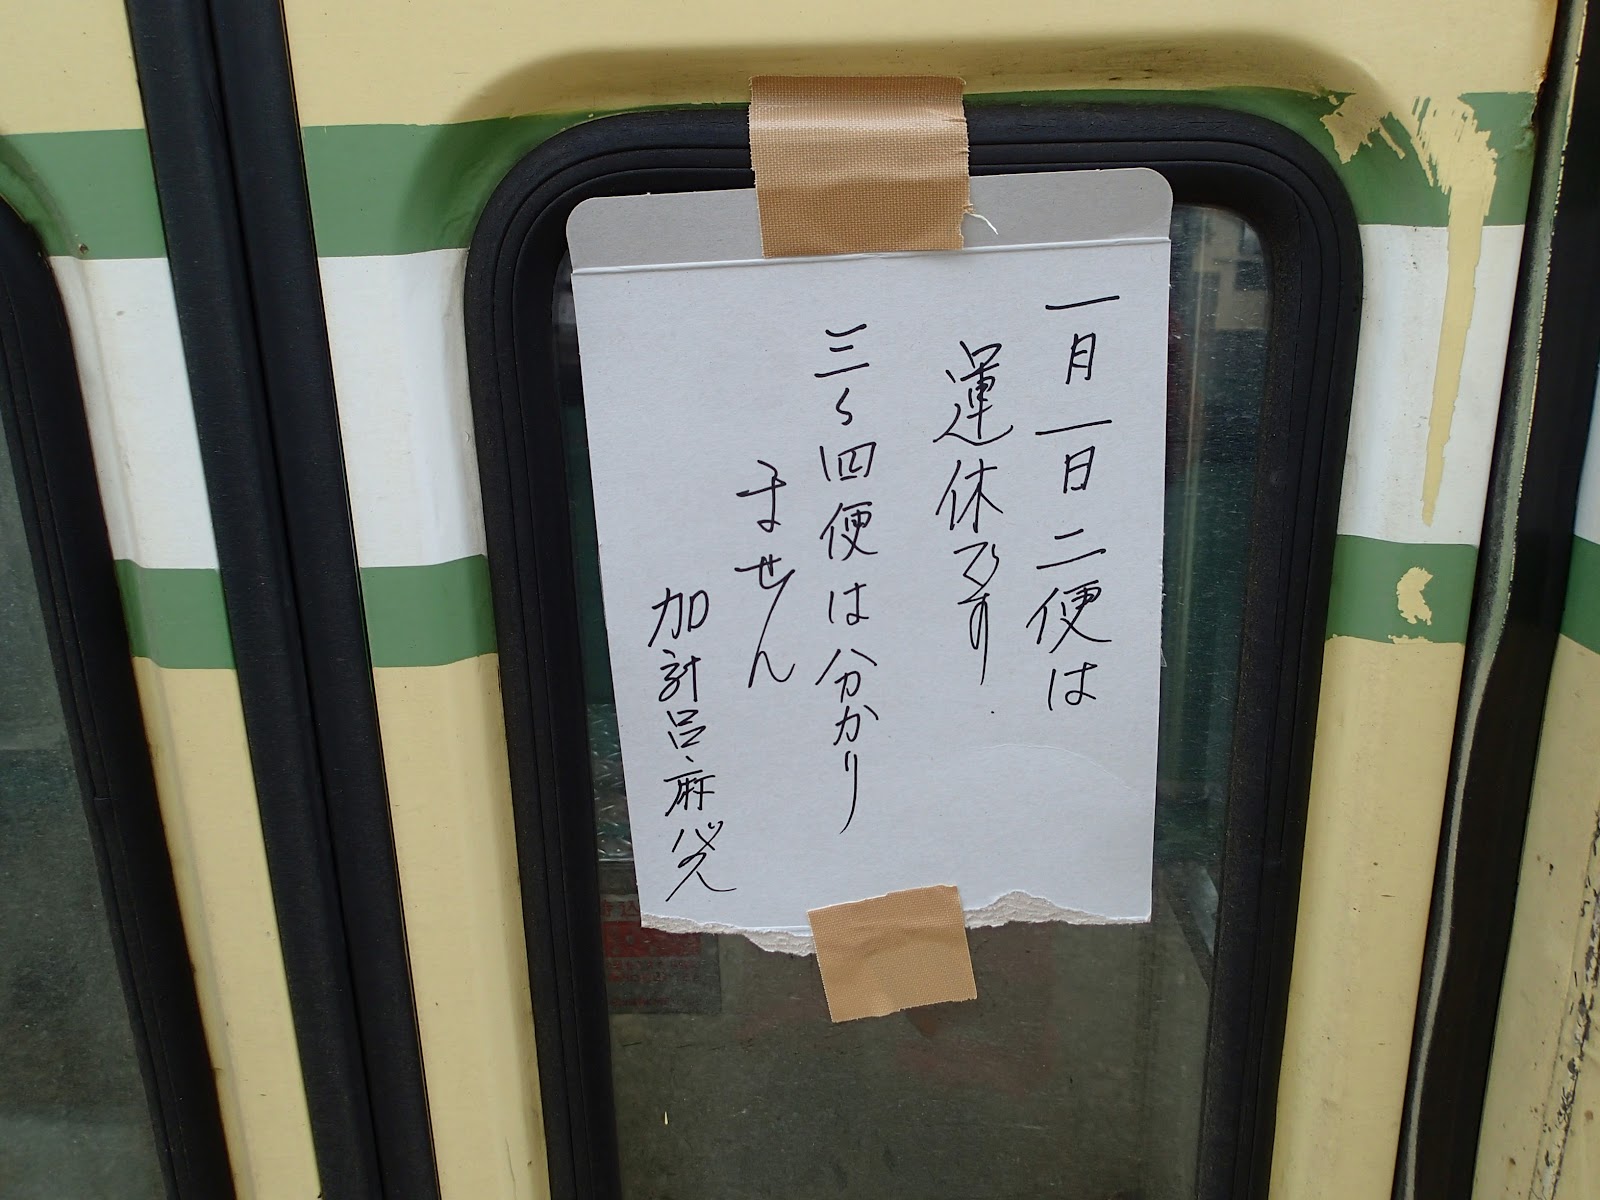 一月一日二便は
運休です
三〜四便は分かり
ません
加計呂麻バス